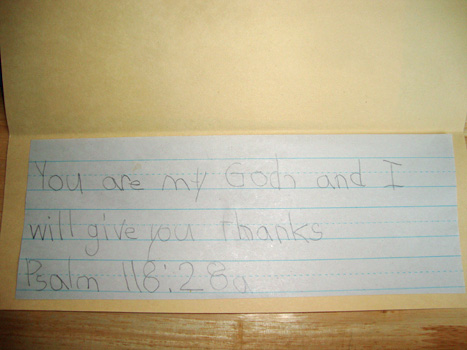 You are my God, and I
will give you thanks
Psalm 118:28a